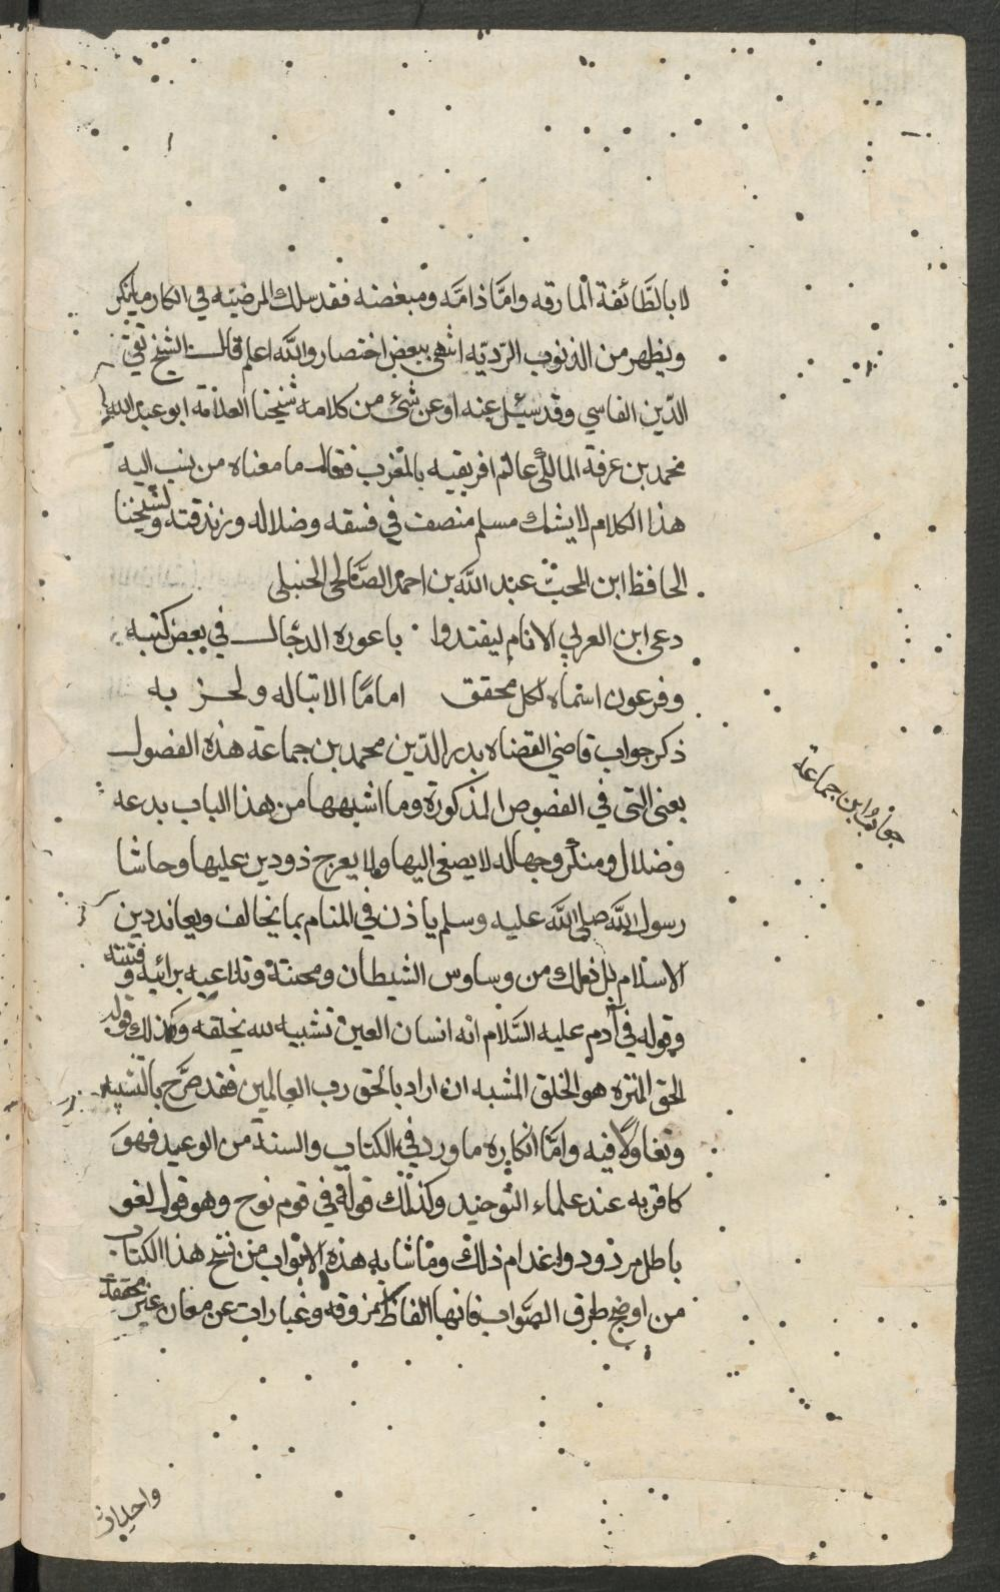 لا بالطَّائفة المارقه وامَّا ذامَّه ومبغضه فقد سلك المرضيّه في انكار ما ينكر
ويظهر من الذنوب الرّديّه انتهى ببعض اختصار واللّه اعلم قال الشيخ تقي
الدّين الفاسي وقد سئيل عنه او عن شئ من كلامه شيخنا العلامة ابو عبد الله
محمد بن عرفة المالكي عالم افريقيه بالمغرب فقال ما معناه من ينسب اليه
هذا الكلام لا يشك مسلم منصف في فسقه وضلاله وزندقته ولشيخنا
الحافظ ابن المحبّ عبد اللّه بن احمد الصَّالحي الحنبلي
دعى ابن العربي الانام ليقتدوا باعوره الدجّال في بعض كتبه
وفرعون اسماه لكل محقق امامًا الا تبا له ولحزبه
ذكر جواب قاضي القضاه بدر الدّين محمد بن جماعة هذه الفصول
يعني التي في الفصوص المذكورة وما اشبهها من هذا الباب بدعه
وضلال ومنكر وجهاله لا يصغى اليها ولا يعرج ذو دين عليها وحاشا
رسول اللّه صلى اللّه عليه وسلم ياذن في المنام بما يخالف ويعاند دين
الاسلام بل ذلك من وساوس الشيطان ومحنتة وتلاعبه برائيه وفتنته
وقوله في آدم عليه السّلام انه انسان العين تشبيه لله بخلقه وكذلك قوله
الحق المنزه هو الخلق المشبه ان اراد بالحق رب العالمين فقد صرَّح بالتشبيه
وتغاولًا فيه وامّا انكاره ما ورد في الكتاب والسنة من الوعيد فهوَ
كافر به عند علماء التوحيد وكذلك قوله في قوم نوح وهو قول لغو
باطل مردود واعدام ذلك وما شابه هذه الابواب من نسخ هذا الكتاب
من اوضح طرق الصَّواب فانها الفاظ مزوقه وعبارات عن معان غير محققه
جواب ابن جماعة
واحداث